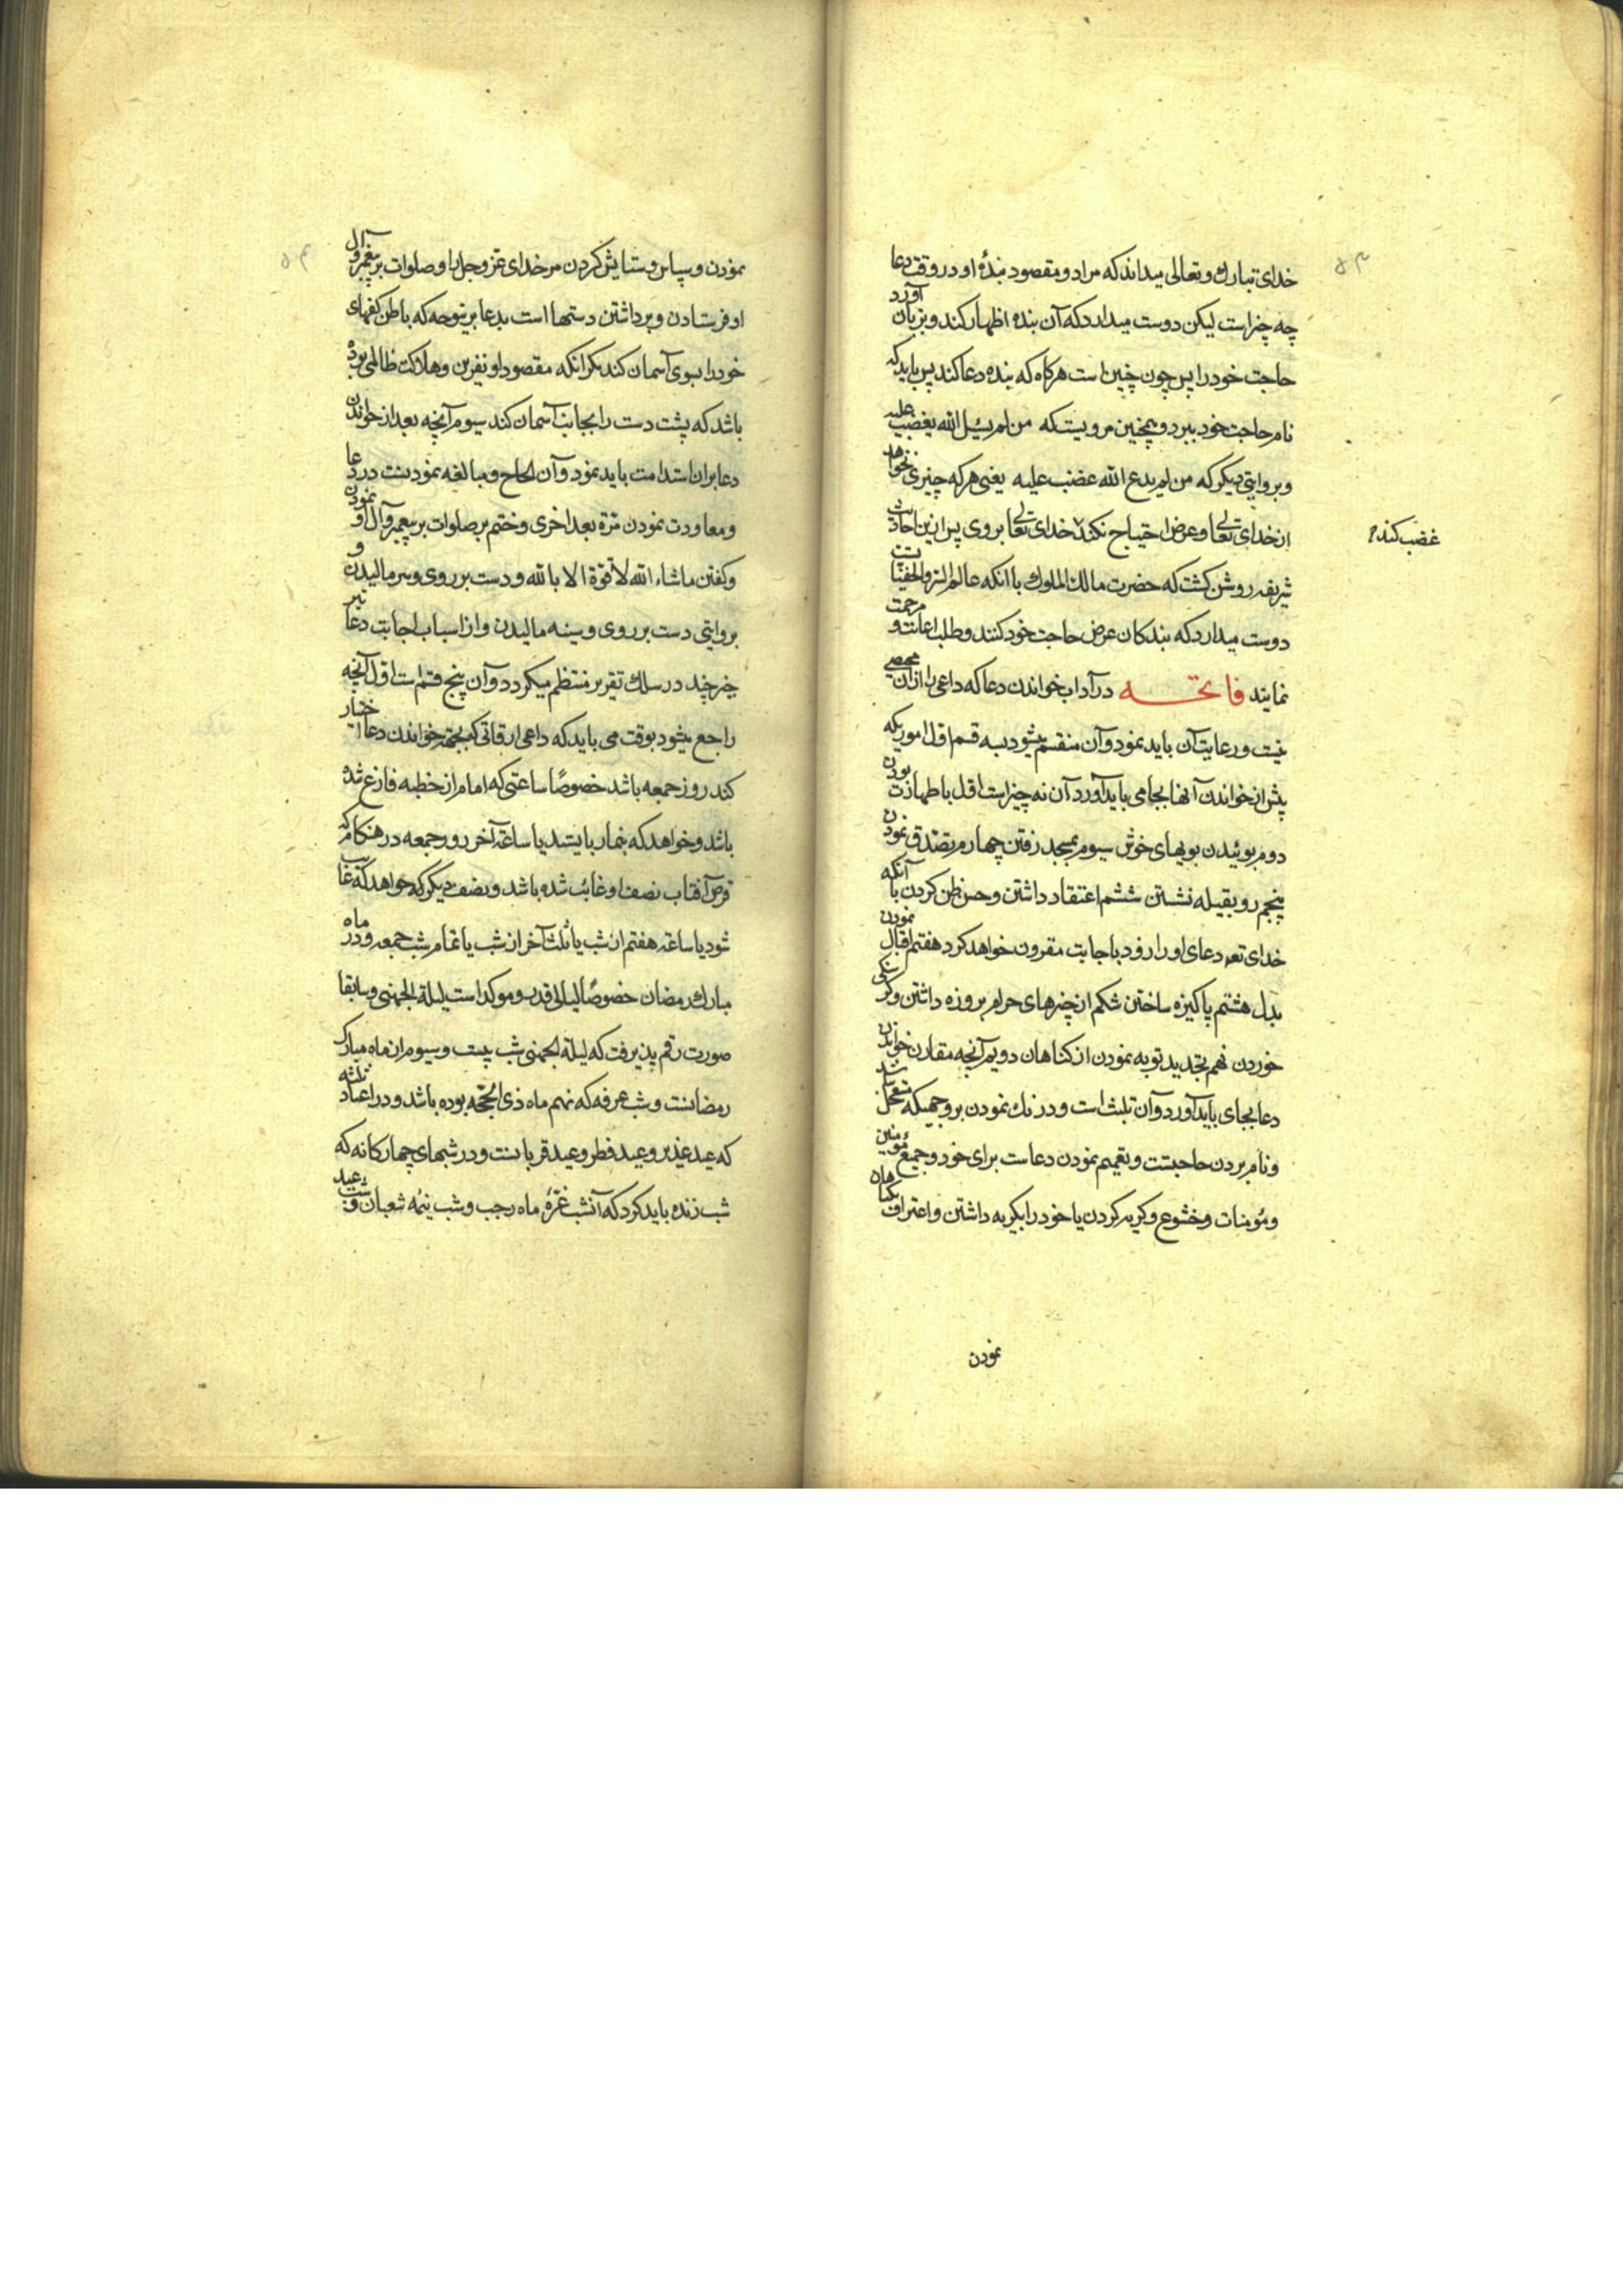 ۵۳
خدای تبارك وتعالی میداند که مراد ومقصود بندهٔ او در وقت دعا
چه چیز است لیکن دوست میدارد که آن بنده اظهار کند وبزبان آورد
حاجت خود را پس چون چنین است هرکاه که بنده دعا کند پس باید که
نام حاجت خود ببرد وهمچنین مرویست که من لم یسئل الله یغضب علیه
وبروایتی دیکر که من لم یدع الله غضب علیه یعنی هرکه چیزی نخواهد
از خدای تعالی وعرض احتیاج نکند خدای تعالی بر وی پس از ین احادیث
غضب کند
شریفه روشن کشت که حضرت مالك الملوك با انکه عالم السر والخفیات
دوست میدارد که بندکان عرض حاجت خود کنند وطلب اعانت و مرحمت
نمایند فاتحه در آداب خواندن دعا که داعی را از ان محیصی
نیست ورعایت آن باید نمود وآن منقسم میشود بسه قسم اول اموریکه
پیش از خواندن آنها بجا می باید آورد آن نه چیز است اول با طهارت بودن
دوم بوئیدن بویهای خوش سیوم بمسجد رفتن چهارم تصدق نمودن
پنجم رو بقبله نشستن ششم اعتقاد داشتن وحسن ظن کردن با آنکه
خدای تعه دعای او را زود با جابت مقرون خواهد کرد هفتم اقبال نمودن
بدل هشتم پاکیزه ساختن شکم از چیزهای حرام بروزه داشتن وکرسنکی
خوردن نهم بتجدید توبه نمودن از کناهان دویم آنچه مقارن خواندن
دعا بجای باید آورد وآن تلبث است ودرنك نمودن بر وجهیکه متعجل نباشد
ونام بردن حاجتست وتعمیم نمودن دعاست برای خود وجمیع مؤمنین
ومؤمنات وخشوع وکریه کردن یا خود را بکریه داشتن واعتراف بکناهان
نمودن
۵۴
نمودن وسپاس وستایش کردن مر خدای عز وجل را وصلوات بر پیغمبر وآل
او فرستادن وبرداشتن دستها است بدعا برینوجه که باطن کفهای
خود را بسوی آسمان کند مکر انکه مقصود او نفرین وهلاکت ظالمی بوده
باشد که پشت دست را بجانب آسمان کند سیوم آنچه بعد از خواندن
دعا بران استدامت باید نمود وآن الحاح ومبالغه نمودنست در دعا
ومعاودت نمودن مرة بعد اخری وختم بر صلوات بر پیغمبر وآل او نمودن
وکفتن ماشاء الله لا قوة الا بالله ودست بر روی وسر مالیدن و
بروایتی دست بر روی وسینه مالیدن واز اسباب اجابت دعا نیز
چیز چند در سلك تقریر منتظم میکردد وآن پنج قسم است اول آنچه
راجع میشود بوقت می باید که داعی اوقاتی که بجهة خواندن دعا اختیار
کند روز جمعه باشد خصوصًا ساعتی که امام از خطبه فارغ شده
باشد وخواهد که بنماز بایستد یا ساعة آخر روز جمعه در هنکام که
قرص آفتاب نصف او غائب شده باشد ونصف دیکر که خواهد که غایب
شود یا ساعة هفتم از شب یا ثلث آخر از شب یا تمام شب جمعه ودر ماه
مبارك رمضان خصوصًا لیالی قدر وموکد است لیلة الجهنی وسابقا
صورت رقم پذیرفت که لیلة الجهنی شب بیست وسیوم از ماه مبارك
رمضانست وشب عرفه که نهم ماه ذی الحجه بوده باشد ودر اعیاد ثلثه
که عید غذیر وعید فطر وعید قربانست ودر شبهای چهارکانه که
شب زنده باید کرد که آنشب غرهٔ ماه رجب وشب نیمه شعبان وشب عید